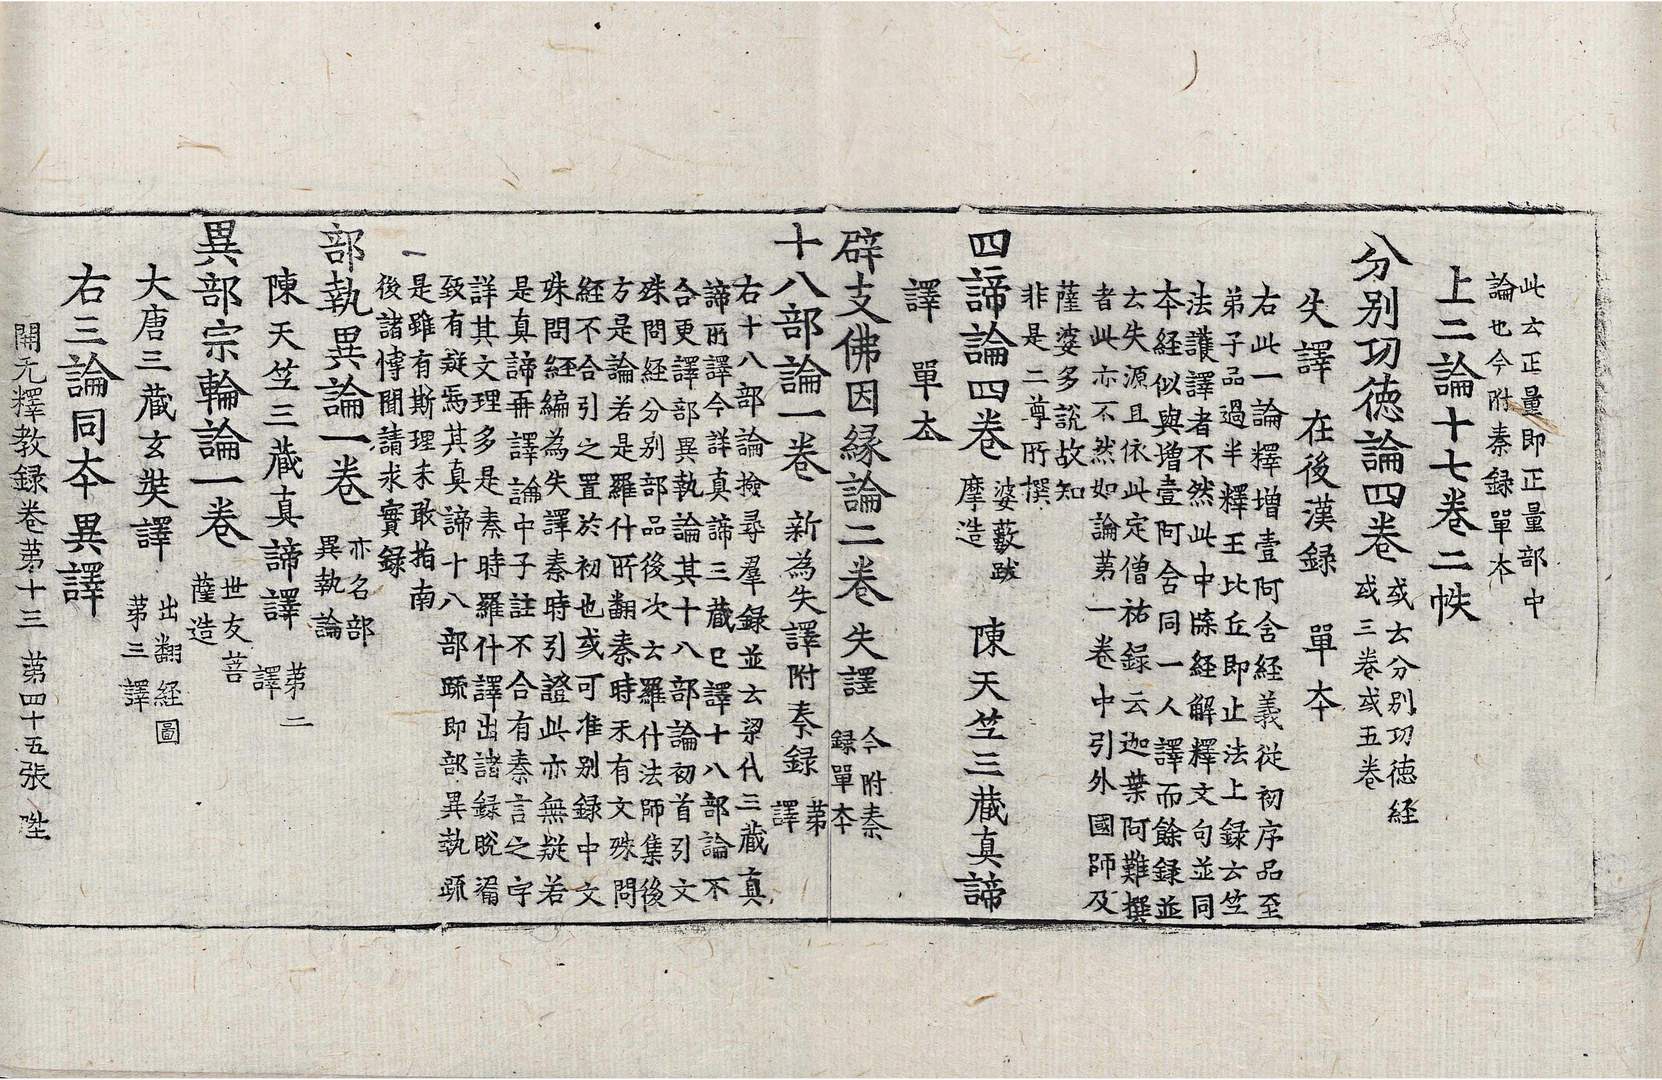 此云正量即正量部中
論也今附秦録單本
上二論十七卷二帙
分別功徳論四卷 或云分別功徳經
或三卷或五卷
失譯 在後漢録 單本
右此一論釋增壹阿含經義從初序品至
弟子品過半釋王比丘即止法上録云竺
法護譯者不然此中牒經解釋文句並同
本經似與增壹阿含同一人譯而餘録並
云失源且依此定僧祐録云迦葉阿難撰
者此亦不然如論第一卷中引外國師及
薩婆多説故知
非是二尊所撰
四諦論四卷 婆藪跋
摩造 陳天竺三藏真諦
譯 單本
辟支佛因緣論二卷 失譯 今附秦
録單本
十八部論一卷 新為失譯附秦録 第
譯
右十八部論撿尋羣録並云梁代三藏真
諦所譯今詳真諦三藏已譯十八部論不
合更譯部異執論其十八部論初首引文
殊問經分別部品後次云羅什法師集後
方是論若是羅什所翻秦時未有文殊問
經不合引之置於初也或可准別録中文
殊問經編為失譯秦時引證此亦無疑若
是真諦再譯論中子註不合有秦言之字
詳其文理多是秦時羅什譯出諸録脱漏
致有疑焉其真諦十八部疏即部異執疏
是雖有斯理未敢指南
後諸博聞請求實録
部執異論一卷 亦名部
異執論
陳天竺三藏真諦譯 第二
譯
異部宗輪論一卷 世友菩
薩造
大唐三藏玄奘譯 出翻經圖
第三譯
右三論同本異譯
開元釋教録卷第十三 第四十五張 陞